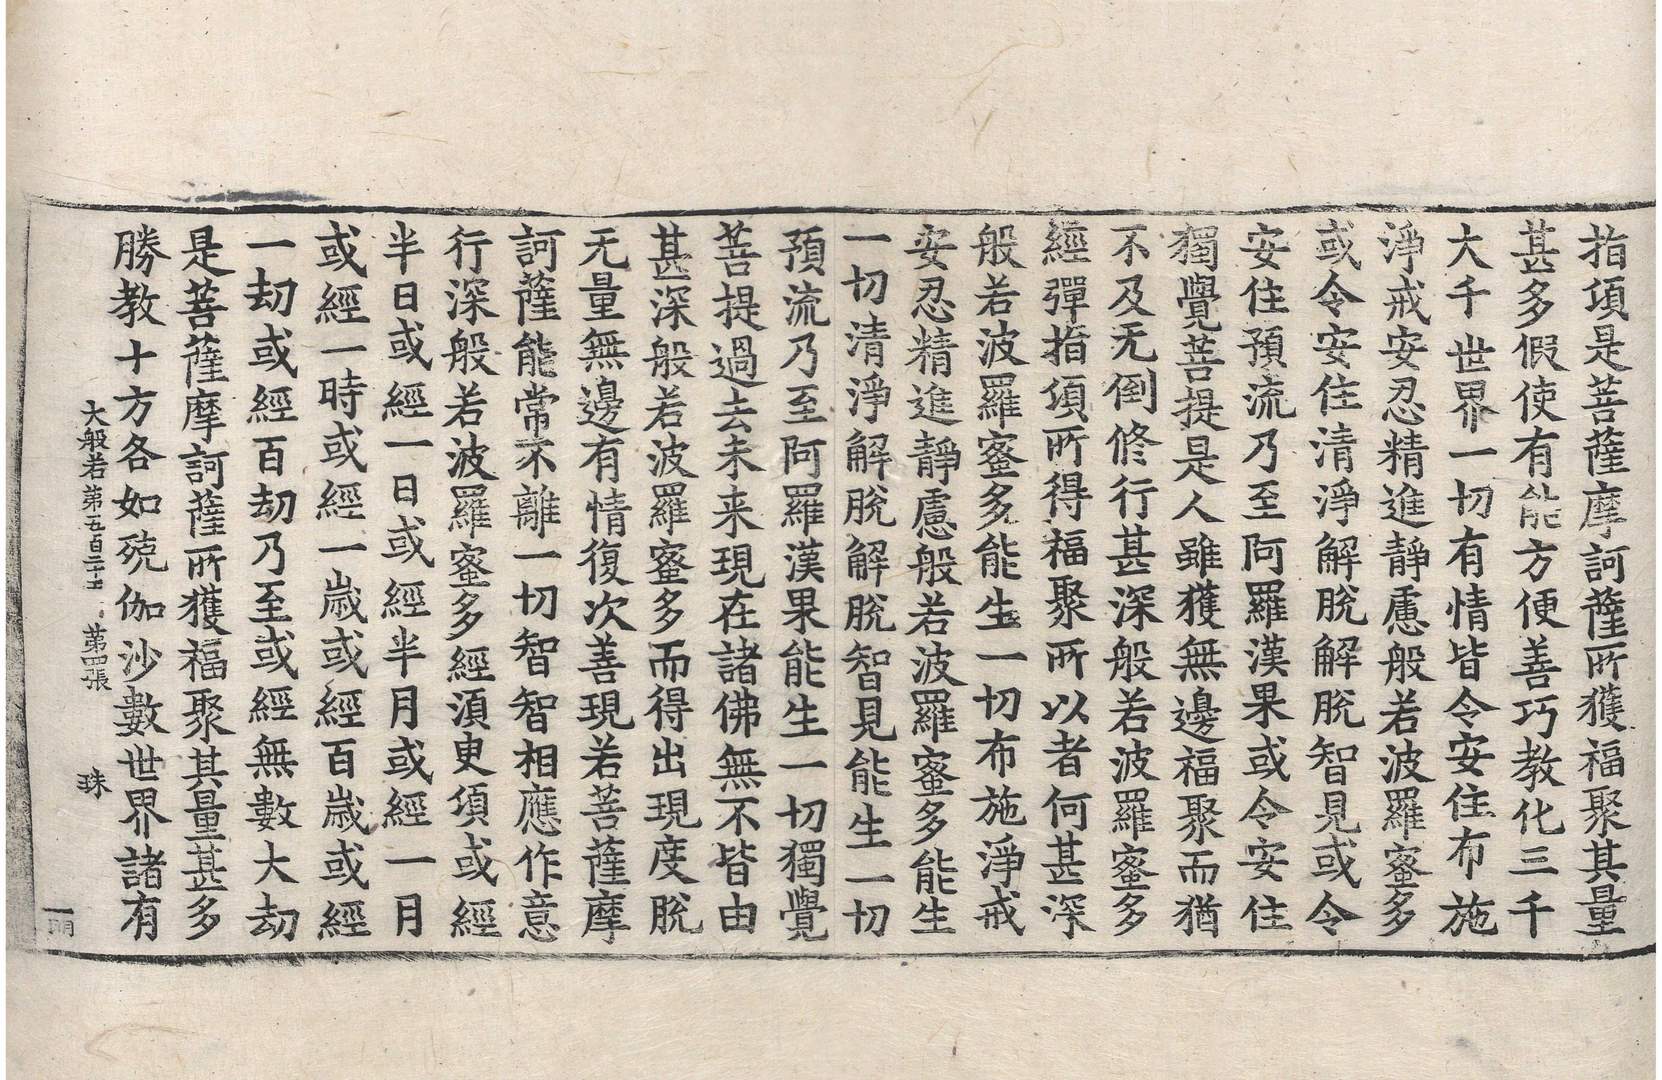 指頃是菩薩摩訶薩所獲福聚其量
甚多假使有能方便善巧教化三千
大千世界一切有情皆令安住布施
淨戒安忍精進靜慮般若波羅蜜多
或令安住清淨解脫解脫智見或令
安住預流乃至阿羅漢果或令安住
獨覺菩提是人雖獲無邊福聚而猶
不及无倒修行甚深般若波羅蜜多
經彈指頃所得福聚所以者何甚深
般若波羅蜜多能生一切布施淨戒
安忍精進靜慮般若波羅蜜多能生
一切清淨解脫解脫智見能生一切
預流乃至阿羅漢果能生一切獨覺
菩提過去未来現在諸佛無不皆由
甚深般若波羅蜜多而得出現度脫
无量無邊有情復次善現若菩薩摩
訶薩能常不離一切智智相應作意
行深般若波羅蜜多經湏臾頃或經
半日或經一日或經半月或經一月
或經一時或經一歲或經百歲或經
一劫或經百劫乃至或經無數大劫
是菩薩摩訶薩所獲福聚其量甚多
勝教十方各如殑伽沙數世界諸有
大般若第五百二十 第四張 珠